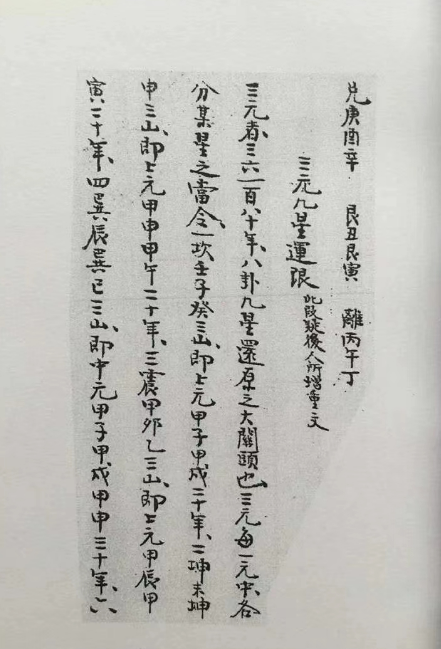 兌庚酉辛　艮丑艮寅　離丙午丁
三元九星運限　此段疑後人所增重文
三元者、三六一百八十年、八卦九星還原之大關頭也、三元每一元中、各
分某星之當令、一坎壬子癸三山、即上元甲子甲戌二十年、二坤未坤
申三山、即上元甲申甲午二十年、三震甲卯乙三山、即上元甲辰甲
寅二十年、四巽辰巽巳三山、即中元甲子甲戌甲申三十年、六、